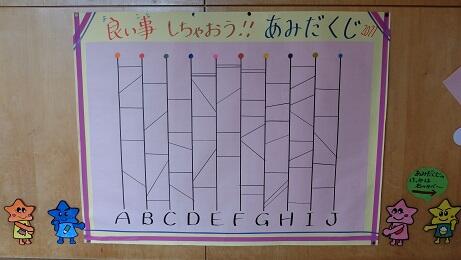 良い事 しちゃおう!! あみだくじ 2011
A B C D E F G H I J
あみだくじの